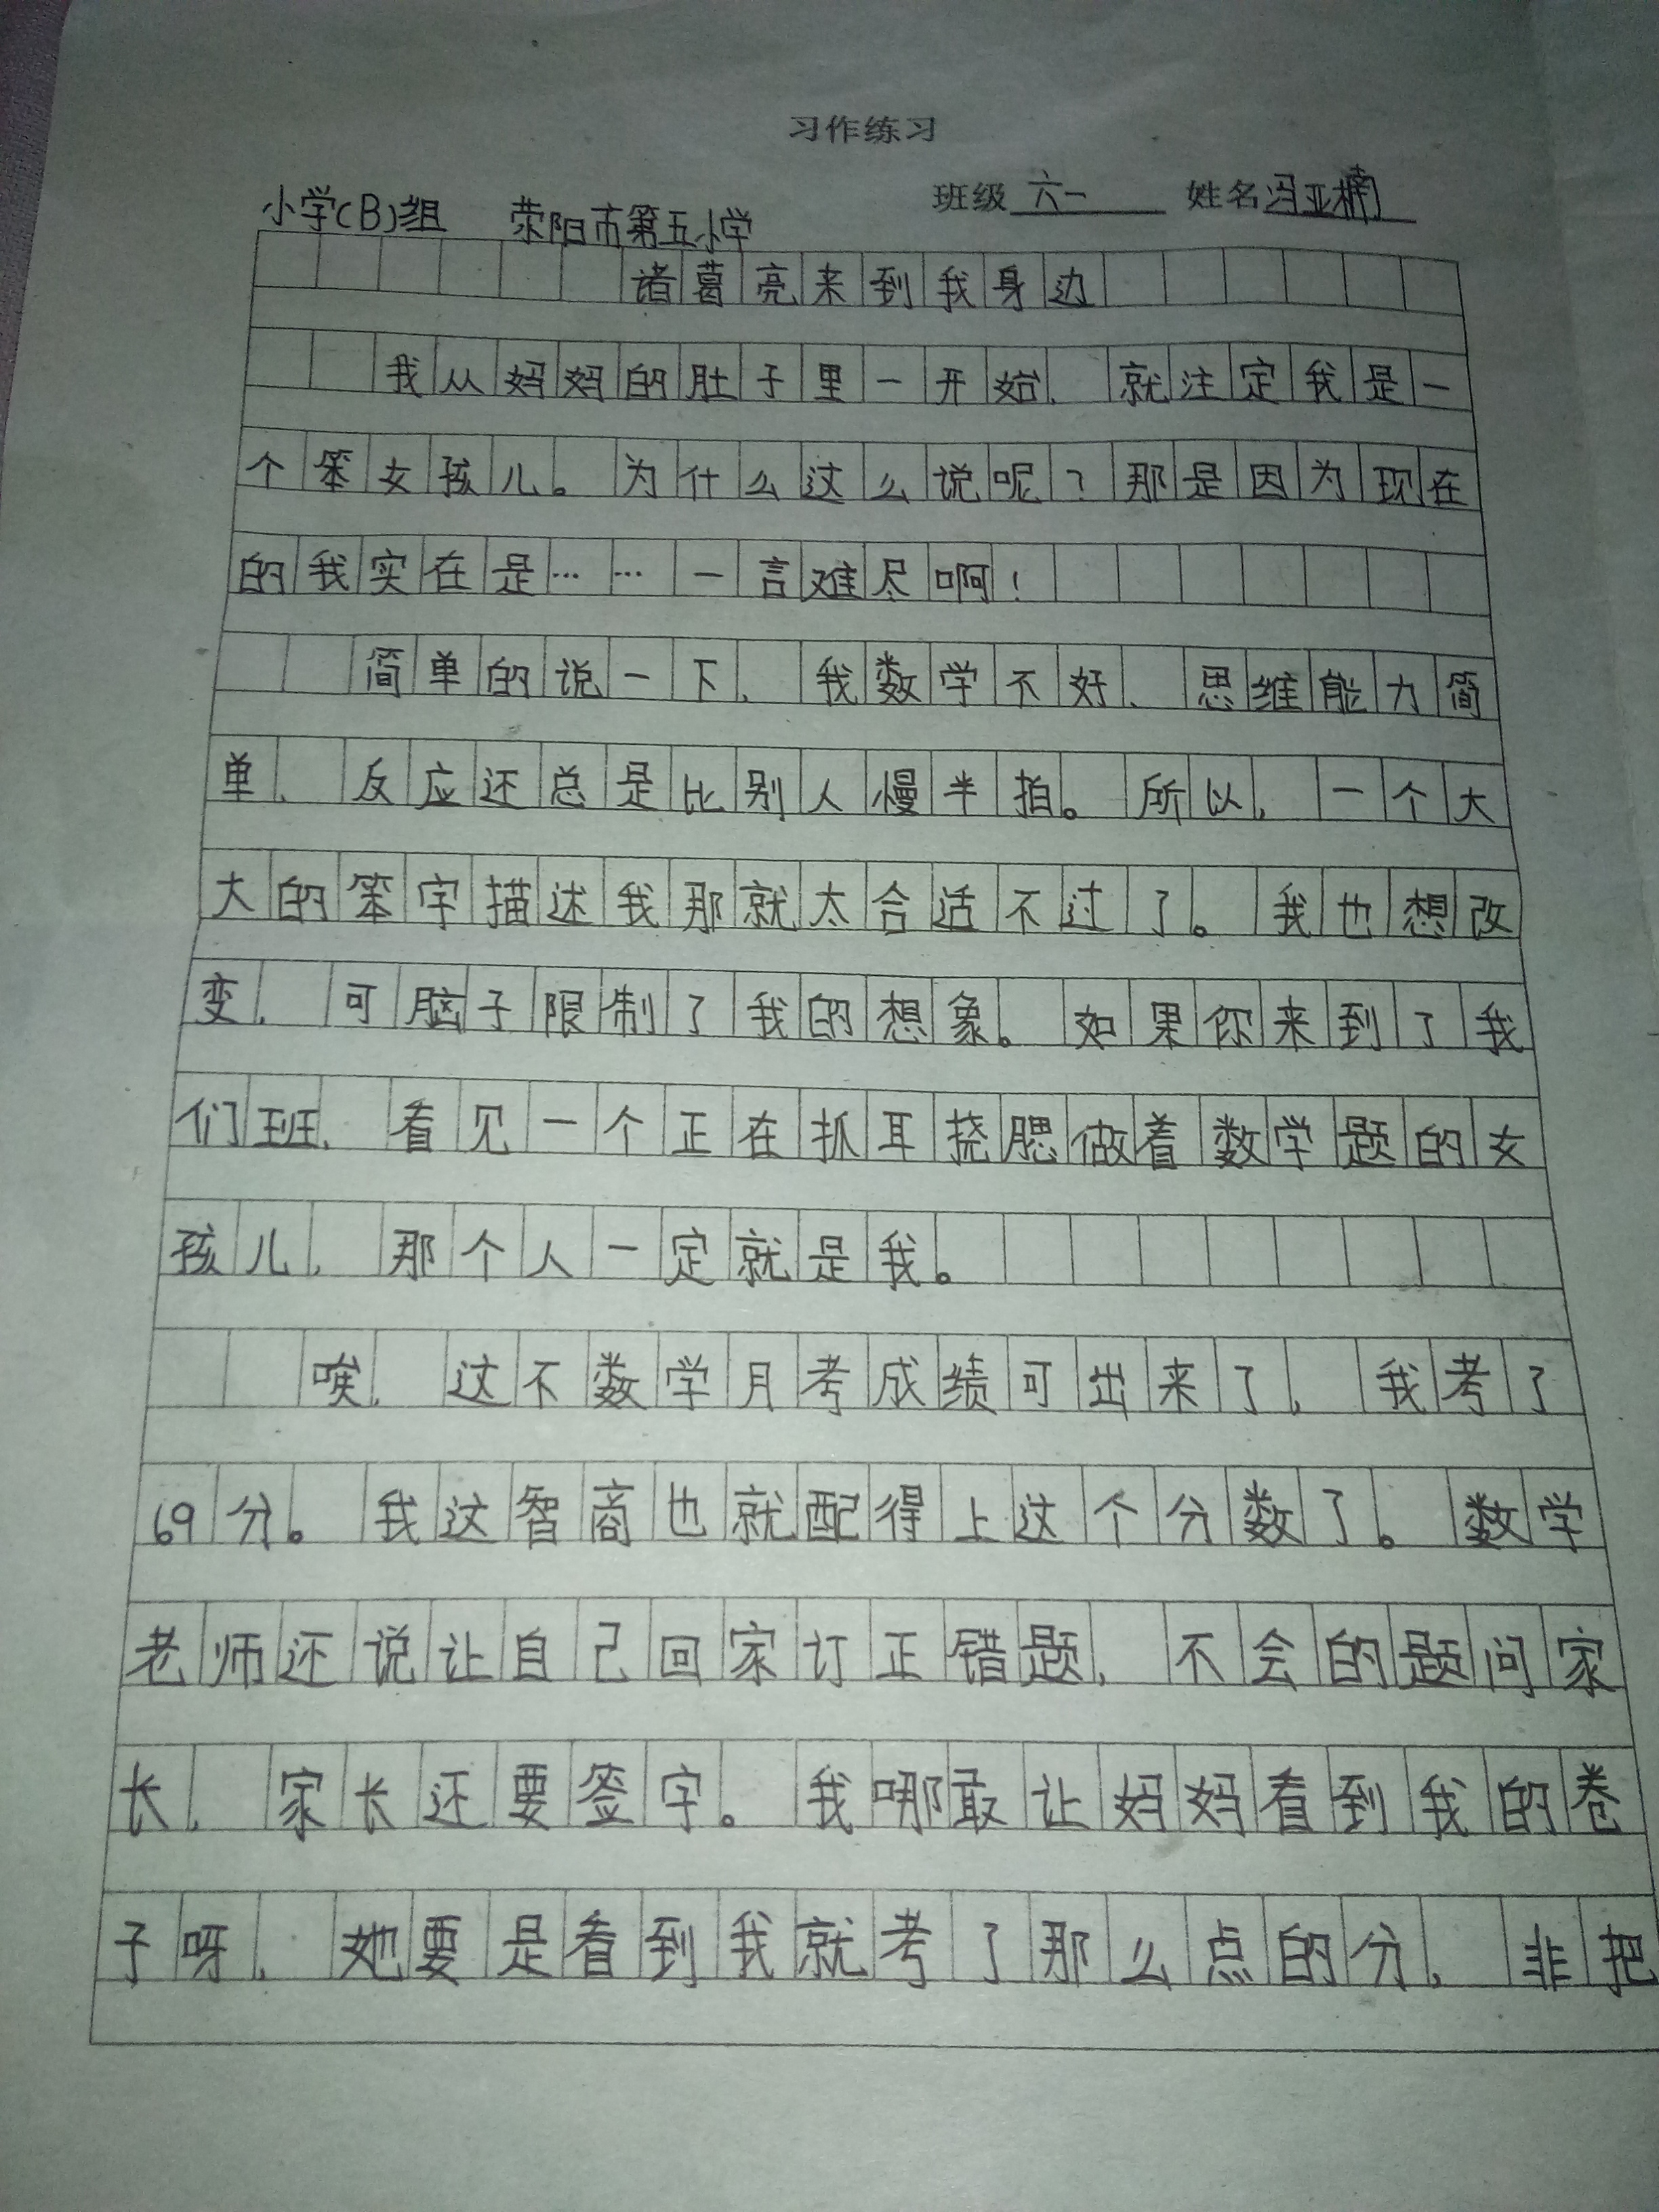 习作练习
小学(B)组 荥阳市第五小学 班级 六一 姓名 冯亚楠
诸葛亮来到我身边
我从妈妈的肚子里一开始，就注定我是一
个笨女孩儿。为什么这么说呢？那是因为现在
的我实在是……一言难尽啊！
简单的说一下，我数学不好、思维能力简
单，反应还总是比别人慢半拍。所以，一个大
大的笨字描述我那就太合适不过了。我也想改
变，可脑子限制了我的想象。如果你来到了我
们班，看见一个正在抓耳挠腮做着数学题的女
孩儿，那个人一定就是我。
唉，这不数学月考成绩可出来了，我考了
69分。我这智商也就配得上这个分数了。数学
老师还说让自己回家订正错题，不会的题问家
长，家长还要签字。我哪敢让妈妈看到我的卷
子呀，她要是看到我就考了那么点的分，非把